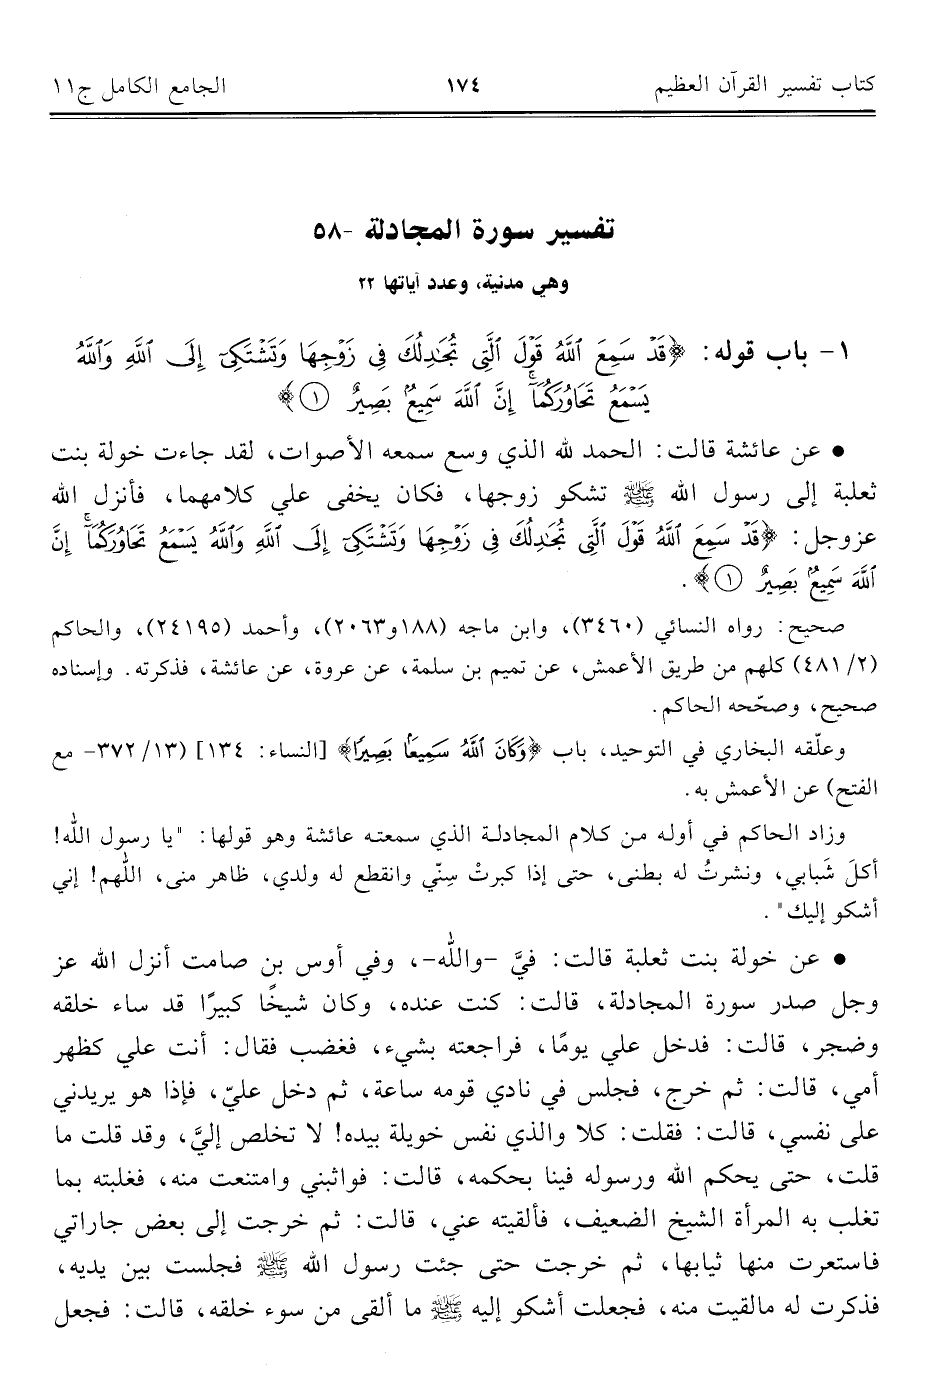 كتاب تفسير القرآن العظيم ١٧٤ الجامع الكامل ج١١
تفسير سورة المجادلة -٥٨
وهي مدنية، وعدد آياتها ٢٢
١- باب قوله: ﴿قَدْ سَمِعَ ٱللَّهُ قَوْلَ ٱلَّتِى تُجَٰدِلُكَ فِى زَوْجِهَا وَتَشْتَكِىٓ إِلَى ٱللَّهِ وَٱللَّهُ
يَسْمَعُ تَحَاوُرَكُمَآ ۚ إِنَّ ٱللَّهَ سَمِيعٌۢ بَصِيرٌ ١﴾
• عن عائشة قالت: الحمد لله الذي وسع سمعه الأصوات، لقد جاءت خولة بنت
ثعلبة إلى رسول الله ﷺ تشكو زوجها، فكان يخفى علي كلامهما، فأنزل الله
عزوجل: ﴿قَدْ سَمِعَ ٱللَّهُ قَوْلَ ٱلَّتِى تُجَٰدِلُكَ فِى زَوْجِهَا وَتَشْتَكِىٓ إِلَى ٱللَّهِ وَٱللَّهُ يَسْمَعُ تَحَاوُرَكُمَآ ۚ إِنَّ
ٱللَّهَ سَمِيعٌۢ بَصِيرٌ ١﴾.
صحيح: رواه النسائي (٣٤٦٠)، وابن ماجه (١٨٨و٢٠٦٣)، وأحمد (٢٤١٩٥)، والحاكم
(٢/ ٤٨١) كلهم من طريق الأعمش، عن تميم بن سلمة، عن عروة، عن عائشة، فذكرته. وإسناده
صحيح، وصحّحه الحاكم.
وعلّقه البخاري في التوحيد، باب ﴿وَكَانَ ٱللَّهُ سَمِيعًۢا بَصِيرًا﴾ [النساء: ١٣٤] (١٣/ ٣٧٢- مع
الفتح) عن الأعمش به.
وزاد الحاكم في أوله من كلام المجادلة الذي سمعته عائشة وهو قولها: "يا رسول الله!
أكلَ شَبابي، ونشرتُ له بطنى، حتى إذا كبرتْ سِنّي وانقطع له ولدي، ظاهر منى، اللّهم! إني
أشكو إليك".
• عن خولة بنت ثعلبة قالت: فيَّ -والله-، وفي أوس بن صامت أنزل الله عز
وجل صدر سورة المجادلة، قالت: كنت عنده، وكان شيخًا كبيرًا قد ساء خلقه
وضجر، قالت: فدخل علي يومًا، فراجعته بشيء، فغضب فقال: أنت علي كظهر
أمي، قالت: ثم خرج، فجلس في نادي قومه ساعة، ثم دخل عليّ، فإذا هو يريدني
على نفسي، قالت: فقلت: كلا والذي نفس خويلة بيده! لا تخلص إليَّ، وقد قلت ما
قلت، حتى يحكم الله ورسوله فينا بحكمه، قالت: فواثبني وامتنعت منه، فغلبته بما
تغلب به المرأة الشيخ الضعيف، فألقيته عني، قالت: ثم خرجت إلى بعض جاراتي
فاستعرت منها ثيابها، ثم خرجت حتى جئت رسول الله ﷺ فجلست بين يديه،
فذكرت له مالقيت منه، فجعلت أشكو إليه ﷺ ما ألقى من سوء خلقه، قالت: فجعل